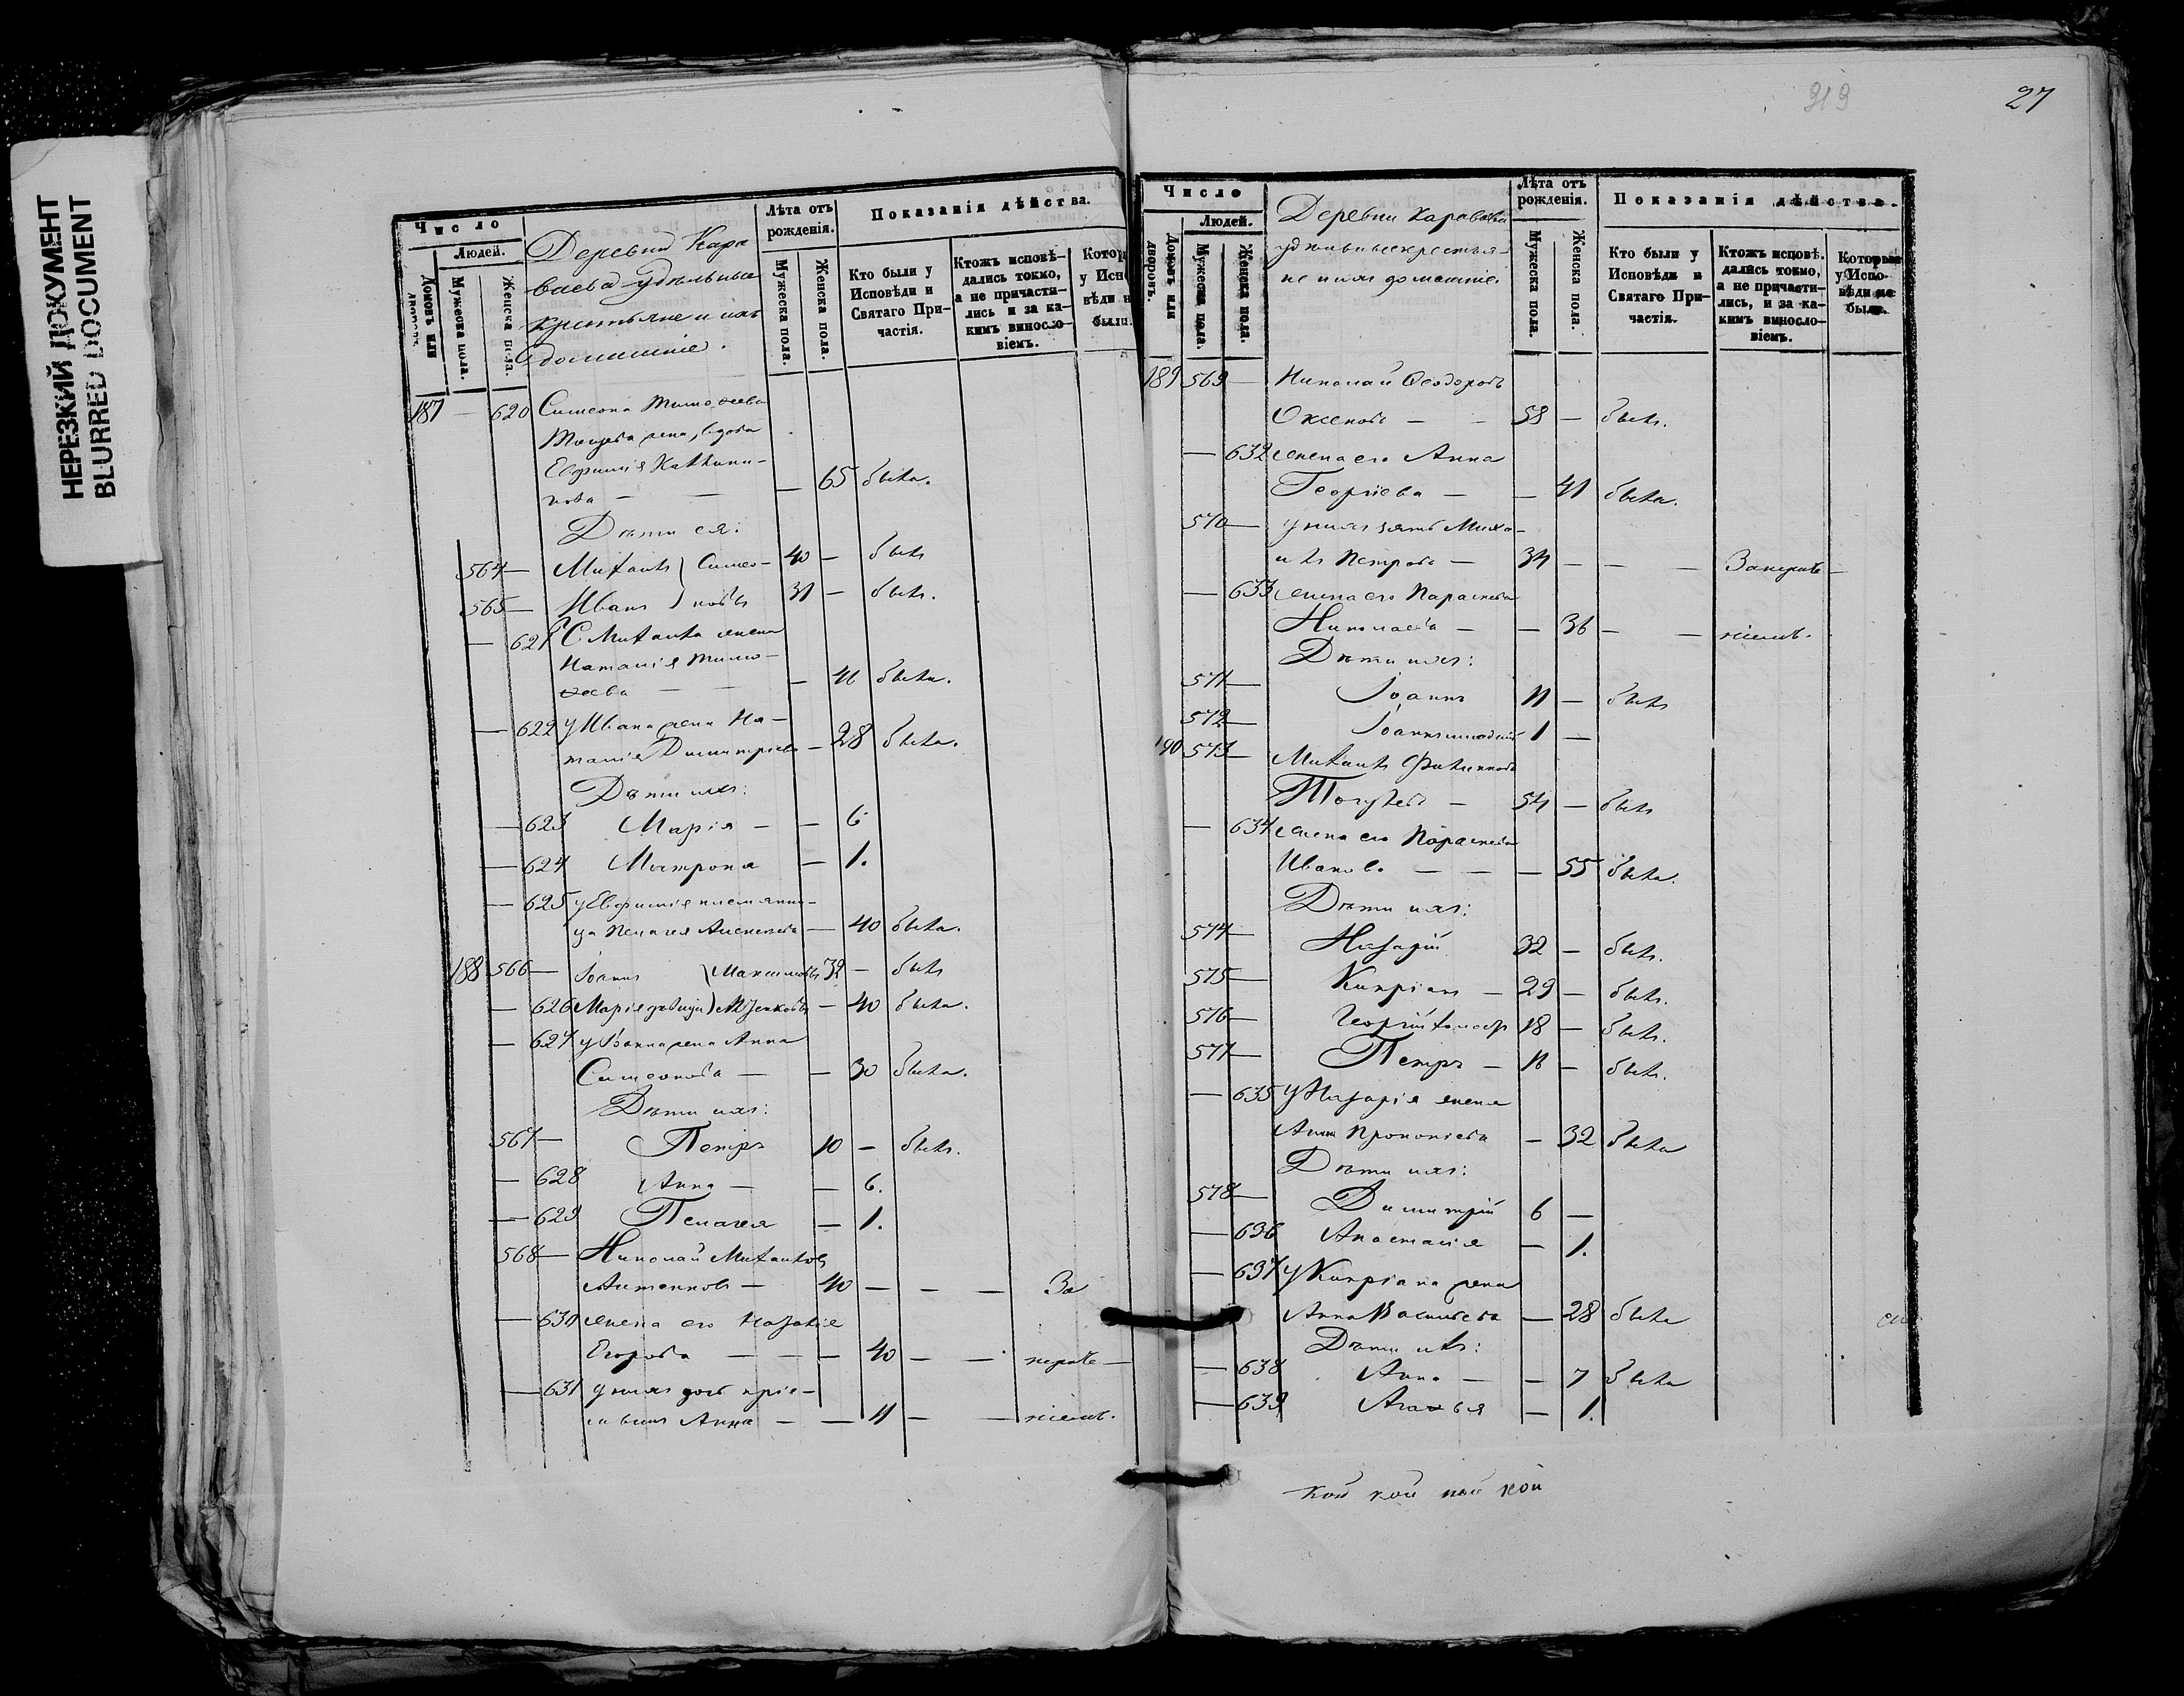 НЕРЕЗКИЙ ДОКУМЕНТ
BLURRED DOCUMENT
Число
Людей.
Домовъ или дворовъ.
Мужеска пола.
Женска пола.
Деревни Кара
ваева удѣльные
крестьяне и ихъ
домашніе.
Лѣта отъ рожденія.
Мужеска пола.
Женска пола.
Показанія дѣйства.
Кто были у Исповѣди и Святаго Причастія.
Ктожъ исповѣдались токмо, а не причастились и за какимъ винословіемъ.
Котор у Исп вѣди н были.
187 — 620 Симеона Тимоѳеева
жена, вдова
Евфимія
нова — — — 65 была.
Дѣти ея:
564 — Михаилъ } Симео- 40 — былъ
565 — Иванъ } новы 31 — былъ.
— 621 Михаила жена
Наталія Тимо-
ѳеева — — — 41 была.
— 622 у Ивана жена На-
талія Димитріева — 28 была.
Дѣти ихъ:
— 623 Марія — — 6
— 624 Матрона — 1.
— 625 у Евфиміи племянни-
ца Пелагея Алексѣева — 40 была.
188 566 — Іоаннъ } Максимовы 32 — былъ
— 626 Марія дѣвица } — 40 была.
— 627 у Іоанна жена Анна
Симеонова — — 30 была.
Дѣти ихъ:
567 — Петръ 10 — былъ.
— 628 Анна — — 6.
— 629 Пелагея — 1.
568 — Николай Михайловъ
— 40 — — — За
— 630 жена его
Егорова — — — 40 — — нерачѐ —
— 631 у нихъ дочь пріе-
мышъ Анна — — 11 — — ніемъ.
319
27
Число
Людей.
Домовъ или дворовъ.
Мужеска пола.
Женска пола.
Деревни Караваева
удѣльные крестья-
не и ихъ домашніе.
Лѣта отъ рожденія.
Мужеска пола.
Женска пола.
Показанія дѣйства.
Кто были у Исповѣди и Святаго Причастія.
Ктожъ исповѣдались токмо, а не причастились, и за какимъ винословіемъ.
Которые у Исповѣди не были.
189 569 — Николай Ѳеодоровъ
Оксеновъ — — 58 — былъ.
— 632 жена его Анна
Георгіева — — 41 была.
570 — у нихъ зять Миха-
илъ Петровъ — 34 — — — Занераче —
— 633 жена его Параскева
Николаева — — 36 — — ніемъ.
Дѣти ихъ:
571 — Іоаннъ 11 — былъ
572 — Іоаннъ младшій 1 —
190 573 — Михаилъ Филиповъ
— 54 — былъ
— 634 жена его Параскева
Иванова — — — 55 была.
Дѣти ихъ:
574 — Назарій 32 — былъ.
575 — Кипріанъ — 29 — былъ.
576 — Георгій 18 — былъ.
577 — Петръ — 16 — былъ.
— 635 у Назарія жена
Анна Прокопіева — 32 была
Дѣти ихъ:
578 — Димитрій 6 —
— 636 Анастасія — 1.
— 637 у Кипріана жена
Анна Васильева — 28 была
Дѣти ихъ:
— 638 Анна — — 7 была
— 639 Агаѳья — 1.
кой кой кой кой